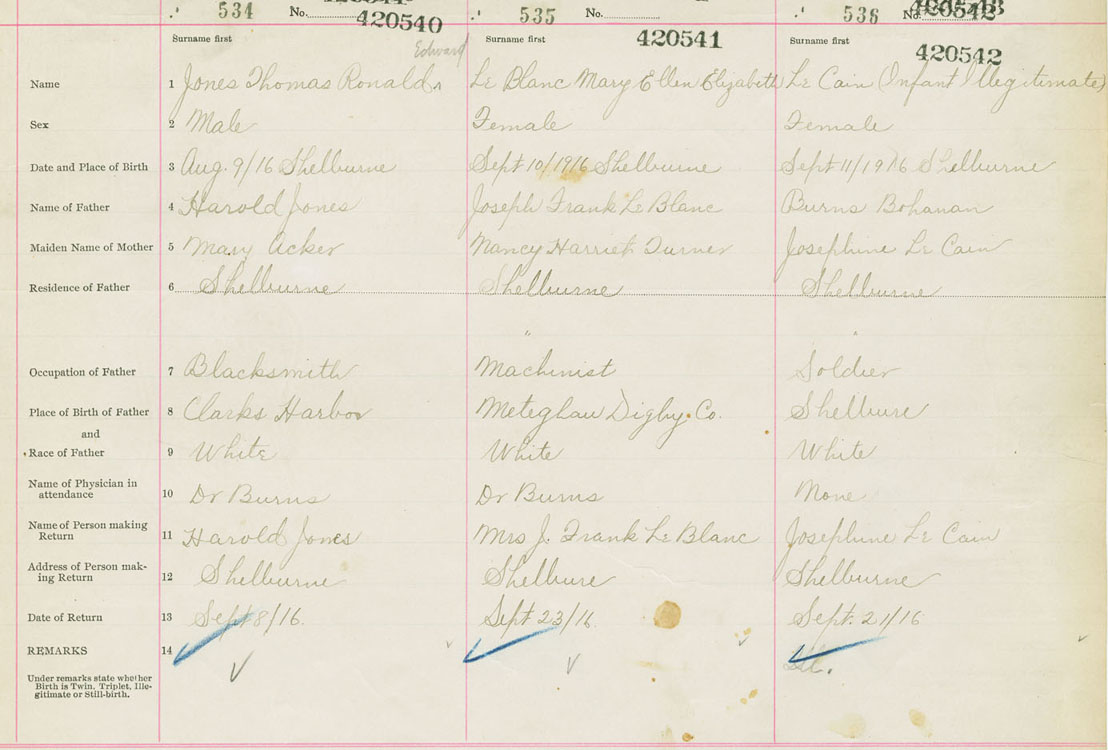 534 No. 420540 535 No. 420541 536 No. 420542
Surname first Edward Surname first Surname first
Name 1 Jones Thomas Ronald Le Blanc Mary Ellen Elizabeth Le Cain (Infant Illegitimate)
Sex 2 Male Female Female
Date and Place of Birth 3 Aug. 9/16 Shelburne Sept 10/1916 Shelburne Sept 11/1916 Shelburne
Name of Father 4 Harold Jones Joseph Frank Le Blanc Burns Bohanan
Maiden Name of Mother 5 Mary Acker Nancy Harriet Turner Josephine Le Cain
Residence of Father 6 Shelburne Shelburne Shelburne
" "
Occupation of Father 7 Blacksmith Machinist Soldier
Place of Birth of Father 8 Clarks Harbor Meteghan Digby Co. Shelbure
and
Race of Father 9 White White White
Name of Physician in
attendance 10 Dr Burns Dr Burns None
Name of Person making
Return 11 Harold Jones Mrs J. Frank Le Blanc Josephine Le Cain
Address of Person mak-
ing Return 12 Shelburne Shelbure Shelburne
Date of Return 13 Sept 8/16. Sept 23/16. Sept. 21/16
REMARKS 14
Under remarks state whether
Birth is Twin, Triplet, Ille-
gitimate or Still-birth.